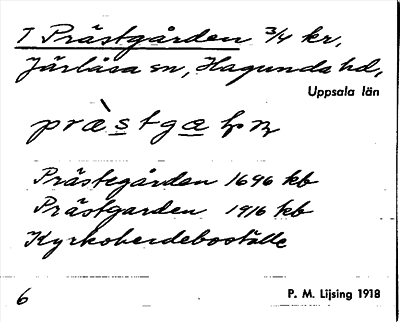 1 Prästgården 3/4 kr,
Järlåsa sn, Hagunda hd,
Uppsala län
Prästegården 1696 kb
Prästgarden 1916 kb
Kyrkoherdeboställe
6
P. M. Lijsing 1918